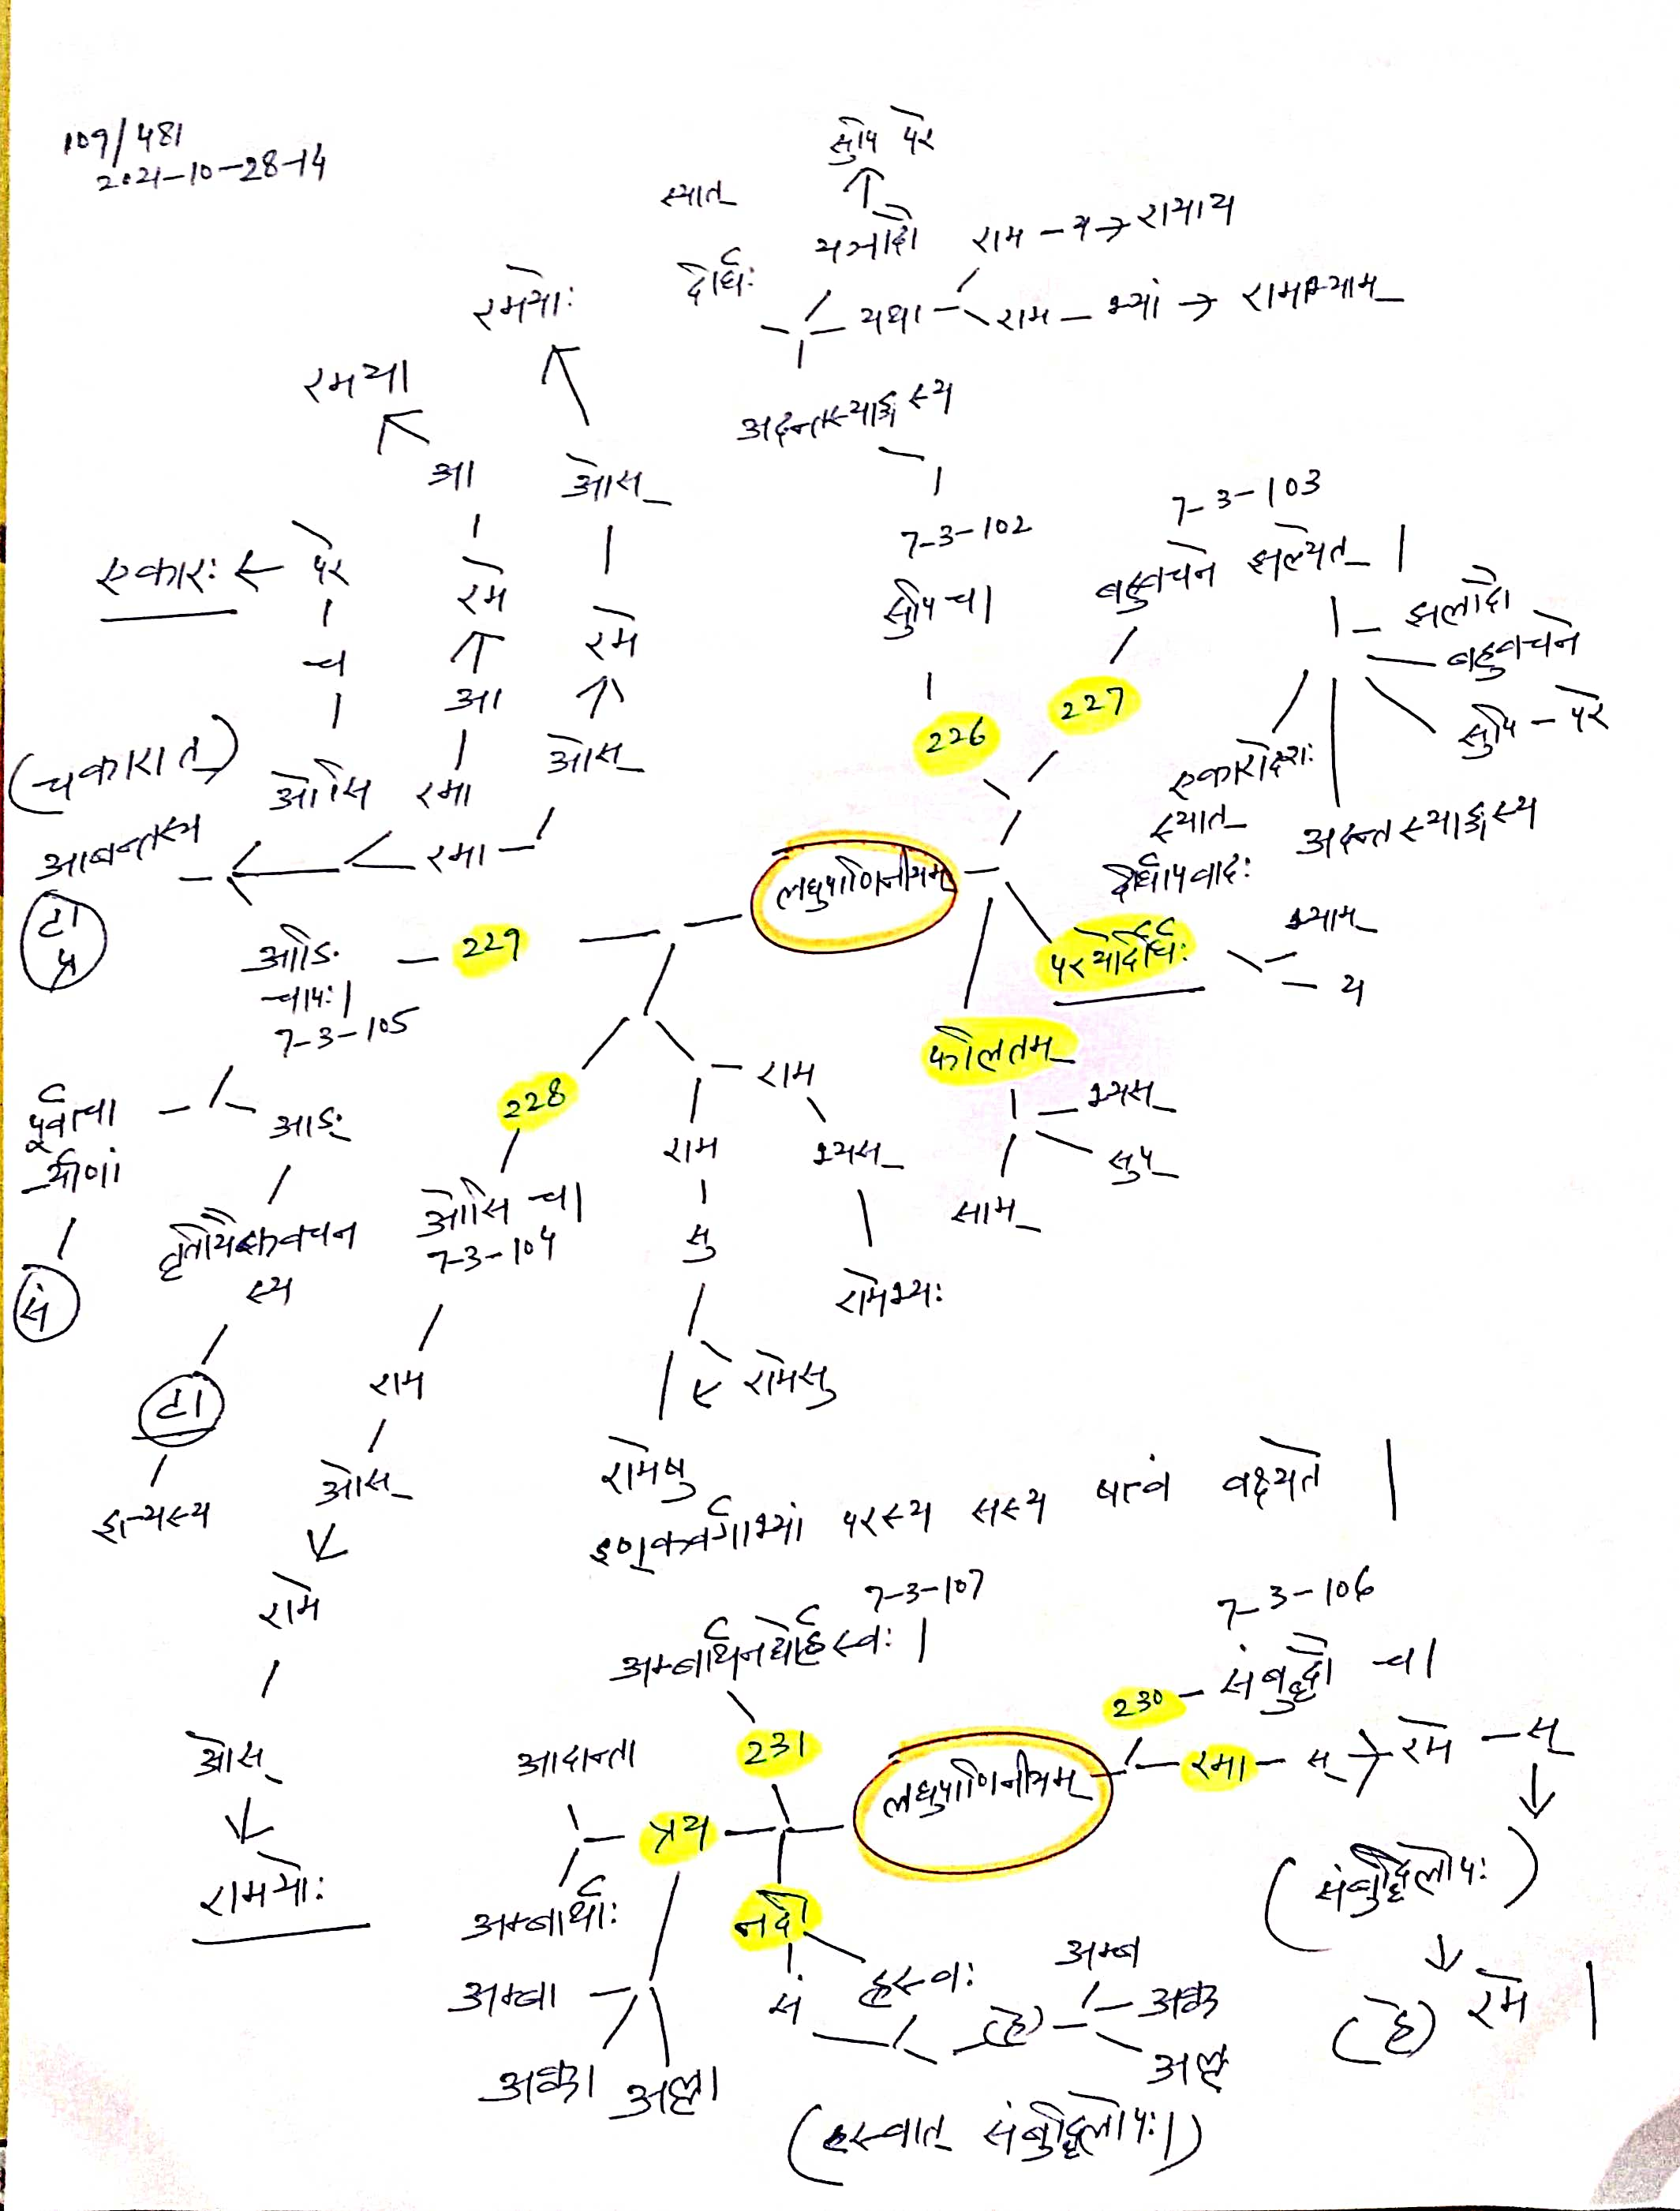 109/481
2021-10-28-14
सुपि परे
स्यात्
यञादौ
दीर्घः
राम - य → रामाय
यथा
राम - भ्यां → रामाभ्याम्
अदन्तस्याङ्गस्य
7-3-102
सुपि च।
226
7-3-103
बहुवचने झल्येत्।
227
झलादौ
बहुवचने
सुपि - परे
अदन्तस्याङ्गस्य
एकारादेशः
स्यात्
दीर्घापवादः
लघुपाणिनीयम्
परयोर्दीर्घः
भ्याम्
य
फलितम्
भ्यस्
सुप्
साम्
रमयोः
रमया
आ
ओस्
एकारः ← परे
रमे
रमे
च
आ
ओस्
(चकारात्)
ओसि
रमा
आबन्तस्य
रमा
टा
प्र
आङि
चापः।
7-3-105
229
पूर्वाचा
र्याणां
आङ्
सं
तृतीयैकवचन
स्य
टा
इत्यस्य
228
ओसि च।
7-3-104
राम
ओस्
रामे
ओस्
रामयोः
राम
राम
भ्यस्
सु
रामेभ्यः
रामेसु
रामेषु
इण्कवर्गाभ्यां परस्य सस्य षत्वं वक्ष्यते।
7-3-107
अम्बार्थनद्योर्ह्रस्वः।
231
7-3-106
230 - संबुद्धौ च।
रमा - स् → रमे - स्
(संबुद्धिलोपः)
(हे) रमे।
लघुपाणिनीयम्
आदान्ता
अम्बार्थाः
अम्बा
अक्का
अल्ला
नदी
सं
ह्रस्वः
(हे)
अम्ब
अक्क
अल्ल
(ह्रस्वात् संबुद्धिलोपः।)